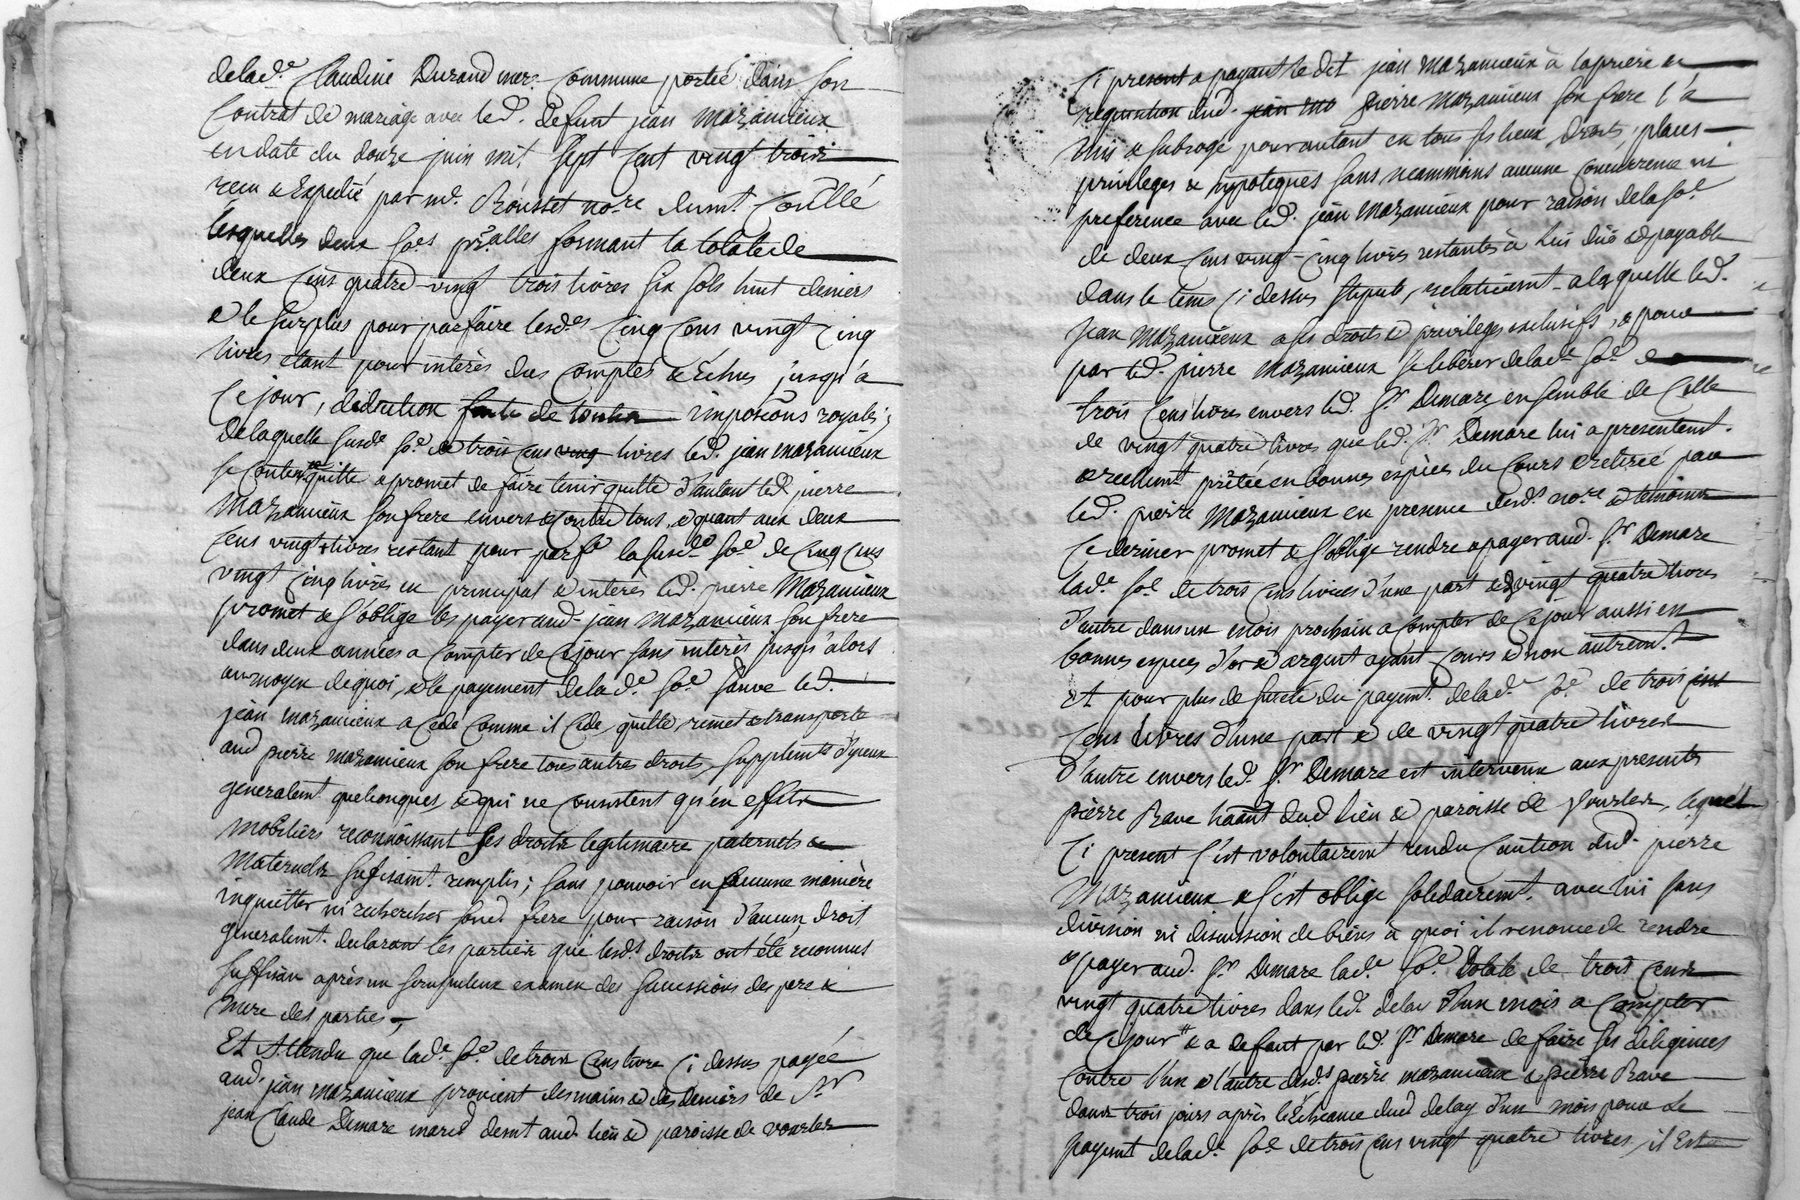 delad.e Claudine Durand mere Commune portée dans son
Contrat de mariage avec led. defunt jean Mazamieux
en date du douze juin mil sept Cent vingt trois
recu & Expedié par m.e Rousset no.re
lesquelles deux so.es prãlles formant la totale de
deux Cens quatre-vingt trois livres six sols huit deniers
& le surplus pour parfaire lesd.es Cinq Cens vingt Cinq
livres étant pour intérès dus Comptés & Echus jusqu'à
Ce jour, deduction faite de toutes impoõns royales;
Delaquelle susd.e so.e de trois Cens livres led. jean Mazamieux
se Contente quitte & promet de faire tenir quitte d'autant led. pierre
Mazamieux son frere envers & Contre tous, & quant aux deux
Cens vingt livres restant pour parf.e la susd.e so.e de Cinq Cens
vingt Cinq livres en principal & intérès led. pierre Mazamieux
promet & s'oblige les payer aud. jean Mazamieux son frere
dans deux années a Compter de Ce jour sans intérès jusqu'alors
au moyen de quoi, & le payement delad.e so.e sauve led.
jean mazamieux a Cédé Comme il Cede, quitte, remet & transporte
aud pierre mazamieux son frere tous autres droits, supplem.ts d'yceux
generalem.t quelconques, & qui ne Consistent qu'en effets
mobiliers reconnoissant ses droits legitimaire paternels &
Maternels sufisam.t remplis; sans pouvoir en aucune manière
inquietter ni rechercher sond. frere pour raison d'aucun droit
generalem.t declarant les parties que lesd.s droits ont été reconnus
suffisan après un scrupuleux examen des successions des pere &
mere des parties
Et Attendu que lad.e so.e de trois Cens livre Ci dessus payée
aud. jean mazamieux provient des mains & des Deniers de S.r
jean Claude Demare mard demt aud. lieu & paroisse de vourles
Ci present & payant ledit jean Mazamieux à la prière &
requisition dud. jean ma pierre Mazamieux son frere l'a
mis & subrogé pour autant en tous ses lieux, Droits, places
privileges & hypoteques sans neammoins aucune Concurrence ni
preference avec led. jean Mazamieux pour raison dela so.e
de deux Cens vingt-Cinq livres restantes à lui düe & payable
dans le tems Ci dessus stipulé, relativem.t a laquelle led.
jean Mazamieux a ses droits & privileges exclusifs, & pour
par led. pierre Mazamieux se liberer delad.e so.e de
trois Cens livres envers led. S.r Demare ensemble de Celle
de vingt quatre livres que led. S.r Demare lui a presentem.t
& reellem.t prêtée en bonnes espèces du Cours & retirée par
led. pierre Mazamieux en presence desd.s no.re & temoins
Ce dernier promet & s'oblige rendre & payer aud. S.r Demare
lad.e so.e de trois Cens livres d'une part & vingt quatre livres
d'autre dans un mois prochain a Compter de Ce jour aussi en
bonnes especes d'or & d'argent ayant Cours & non autrem.t
Et pour plus de sureté du payem.t delad.e so.e de trois Cens
Cens livres d'une part & de vingt quatre livres
d'autre envers led. S.r Demare est intervenu aux presents
pierre Rave dud lieu & paroisse de vourles, lequel
Ci present s'est volontairem.t rendu Caution dud. pierre
Mazamieux & s'est obligé solidairem.t avec lui sans
division ni discussion de biens à quoi il renonce de rendre
& payer aud. S.r Demare lad.e so.e totale de trois Cens
vingt quatre livres dans led. delai d'un mois a Compter
de Ce jour & a defaut par led. S.r Demare de faire ses diligences
Contre l'un & l'autre desd.s pierre mazamieux & pierre Rave
dans trois jours après l'Echeance dud delay d'un mois pour le
payemt delad.e so.e de trois Cens vingt quatre livres, il Est